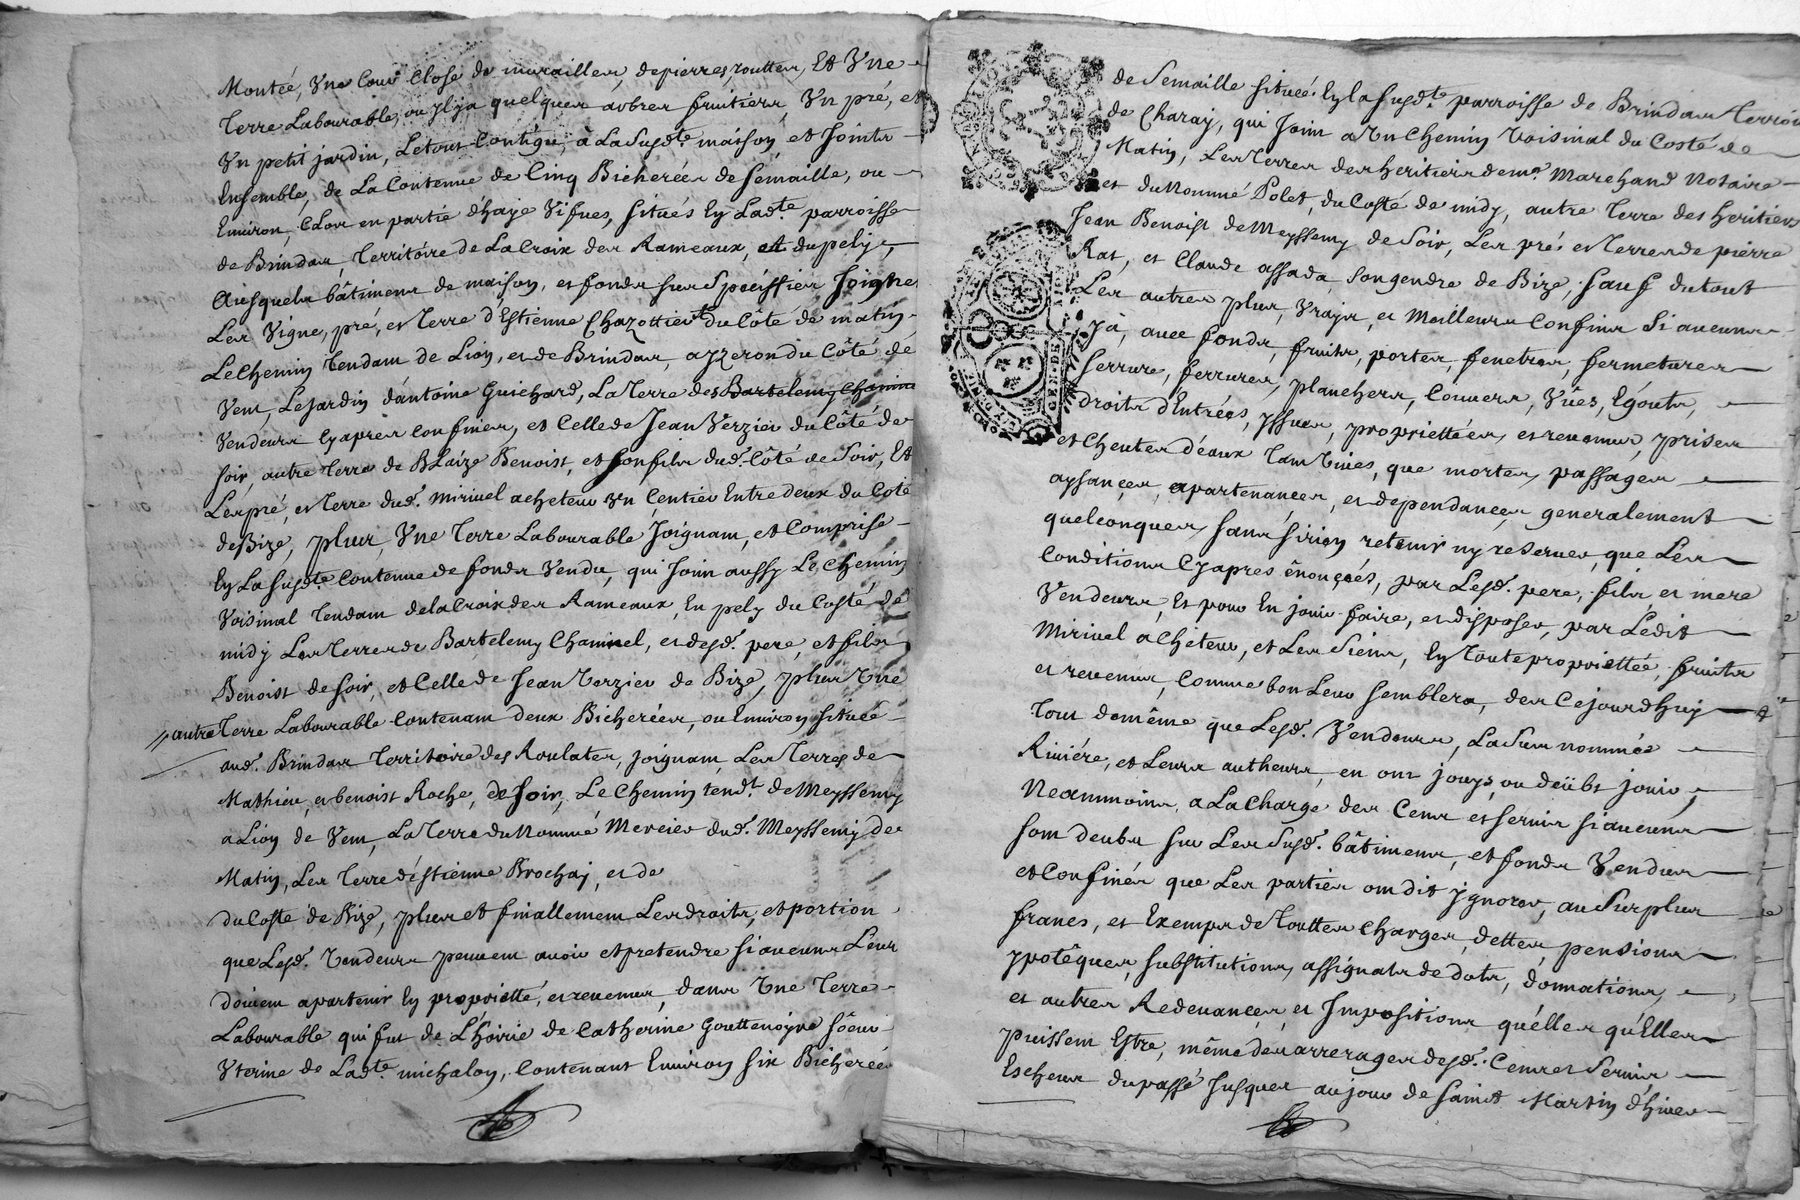 Montée, Une Cour Close de murailles, de pierres, toutter, Et Une
Terre Labourable, ou jl ya quelques arbres fruitiers, Un pré, et
Un petit jardin, Le tout Contigu, à La susd.te maison, et Joints
Ensemble, de La Contenue de Cinq Bicherées de semaille, ou
Environ, Clos en partie d'haje Vifues, situés En Lad.te parroisse
de Brindas, Territoire de La Croix des Rameaux, et du pely,
Ausquels bâtimens de maison, et fonds sus Spéciffiés Joignent
Les Vigne, pré, et Terre d'Estienne Chazottier du Côté de matin
Le Chemin Tendam de Lion, et de Brindas, a yzeron du Côté de
Vem, Le Jardin d'antoine Guichard, La Terre des Bartelemy Chaminel
Vendeurs Cyapres Confinés, et Celle de Jean Verzier du Côté de
soir, autre Terre de BLaize Benoist, et son fils dud. Côté de Soir, Et
Les pré, et Terre dud. Mirivel acheteur Un Centier Entre deux du Coté
de Bize, plus, Une Terre Labourable Joignam, et Comprise
En La susd.te Contenue de fonds Vendu, qui Join aussy Le Chemin
Voisinal Tendam de la Croix des Rameaux, En pely du Costé de
midy Les Terres de Bartelemy Chaminel, et desd. pere, et fils
Benoist de soir, et Celle de Jean Verzier de Bize, plus Une
// autre Terre Labourable Contenam deux Bicherées, ou Environ située
aud. Brindas Territoire des Roulates, joignam Les Terres de
Mathieu, et benoist Roche, de soir, Le Chemin tend.t de Meyssemy
a Lion de Vem, La Terre du Nommé Mercier dud. Meyssemy de
Matin, Les Terre d'éstienne Brochaj, et de
du Coste de Bize, plus et finallement Les droits, et portion
que Lesd. Vendeurs peuvem avoir et pretendre si aucuns Leur
doivem apartenir En proprietté, et revenus, dans Une Terre
Labourable qui fut de L'hoirie de Catherine Gouttenoyre sœur
Vterine de Lad.te michalon, Contenant Environ Six Bicherées
de Semaille située En la susd.te parroisse de Brindas Terroir
de Charay, qui Join a Un Chemin Voisinal du Costé de
Matin, Les Terres des heritiers de m.e Marchand Notaire
et du Nommé Polet, du Costé de midy, autre Terre des heritiers
Jean Benoist de Meyssemy de Soir, Les prés et Terres de pierre
Rat, et Claude assada son gendre de Bize, sauf du tout
Les autres plus, Vrays, et Meilleurs Confins Si aucuns
y à, avec fonds, fruits, portes, fenetres, fermetures
serrure, ferrures, planchers, Couvers, Vües, Egouts,
droits d'Entrées, yssues, propriettées, et revenus, prises
et Cheutes d'éaux tam Vives, que mortes, passages
aysances, apartenances, et dependances generalement
quelconques, sans s'irien retenir ny reserver, que Les
Conditions Cyapres énonçés, par Lesd. pere, fils, et mere
Vendeurs, Et pour En jouir faire, et disposer, par Ledit
Mirivel acheteur, et Les Siens, En Toute propriettée, fruits
et revenus, Comme bon Leur semblera, des Cejourdhuy
Tout de même que Lesd. Vendeurs, La Sus nommée
Riviére, et Leurs autheurs, en om jouys, ou deübt jouir,
Neammoins, a La Charge des Cens et servis si aucuns
som deubs sur Les Susd. bâtimens, et fonds Vendus
et Confinés que Les parties om dit ygnorer, au Surplus
francs, et Exemps de Toutes Charges, dettes, pensions
ypotêques, substitutions, assignats de dots, donnations,
et autres Redevances, et Impositions qu'elles qu'Elles
puissem Estre, même des arrerages desd. Cens et Servis
Escheus du passé Jusques au jour de Saint Martin d'hiver